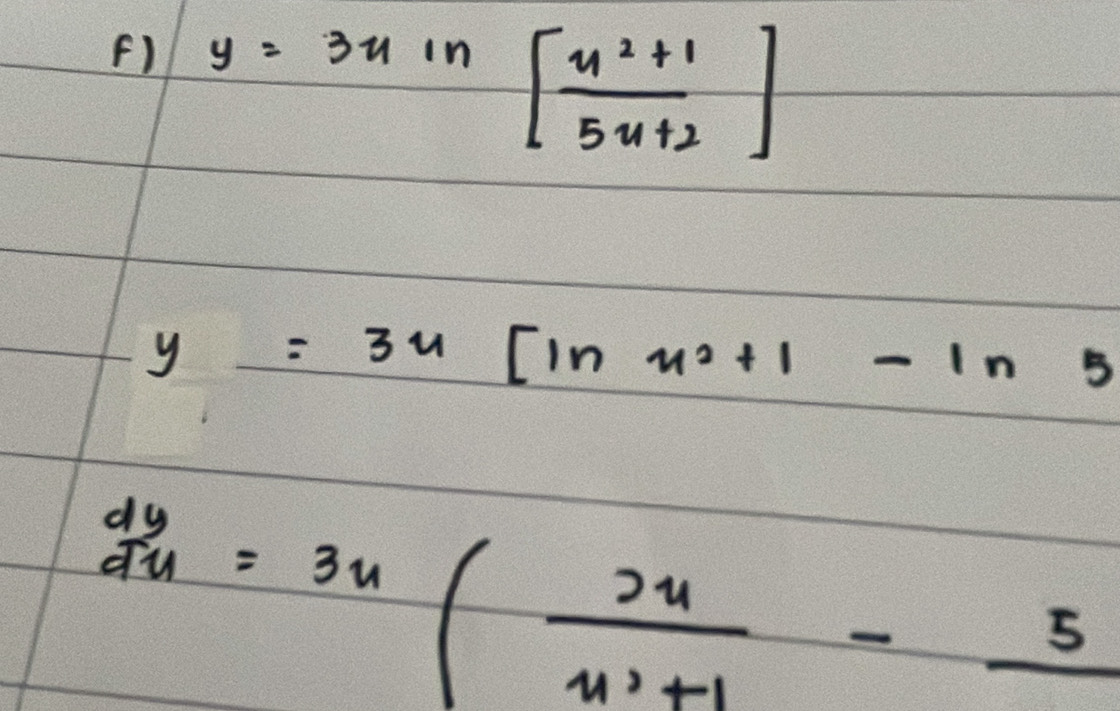 f) y = 3u ln [ u² + 1 / 5u + 2 ]
y = 3u [ ln u² + 1 - ln 5
dy/du = 3u ( 2u / u² + 1 - 5